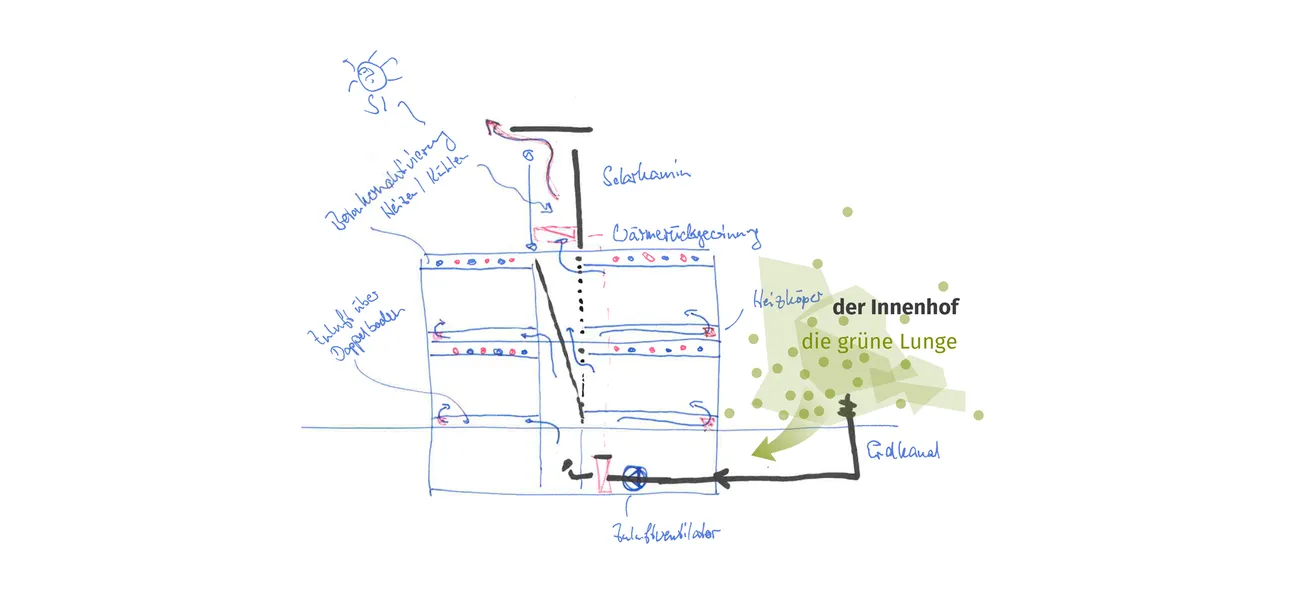 SI
Betonkonditionierung
Heizen / Kühlen
Solarkamin
Wärmerückgewinnung
Zuluft über
Doppelboden
Heizköper
der Innenhof
die grüne Lunge
Erdkanal
Zuluftventilator